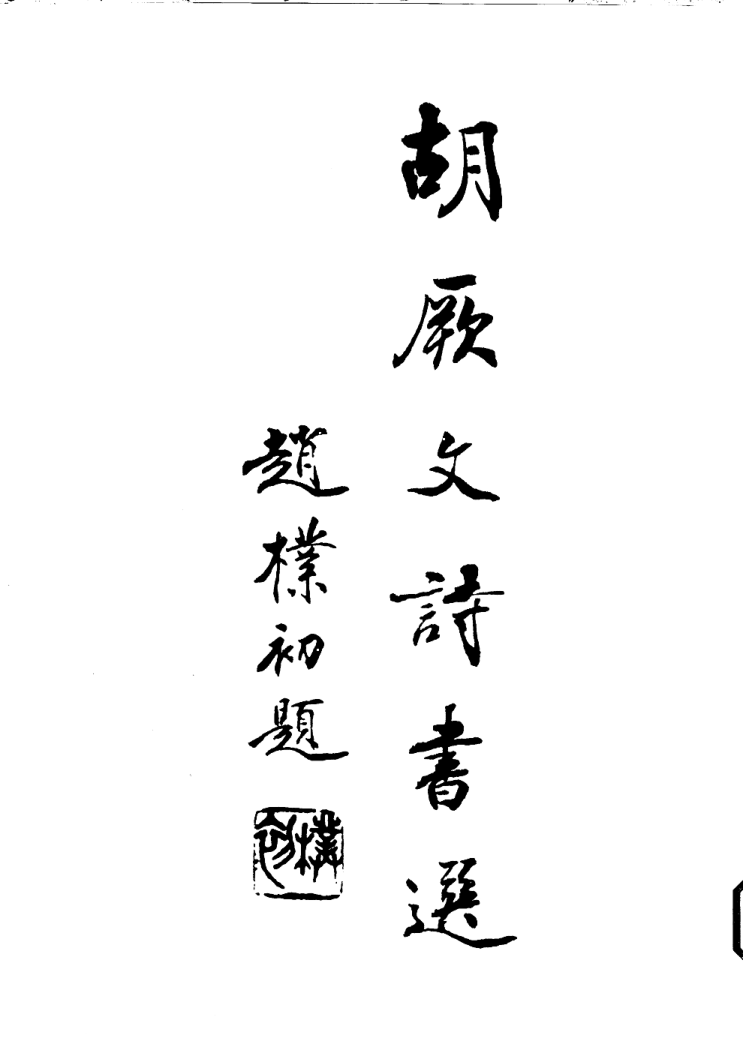 胡厥文詩書選
趙樸初題
樸初